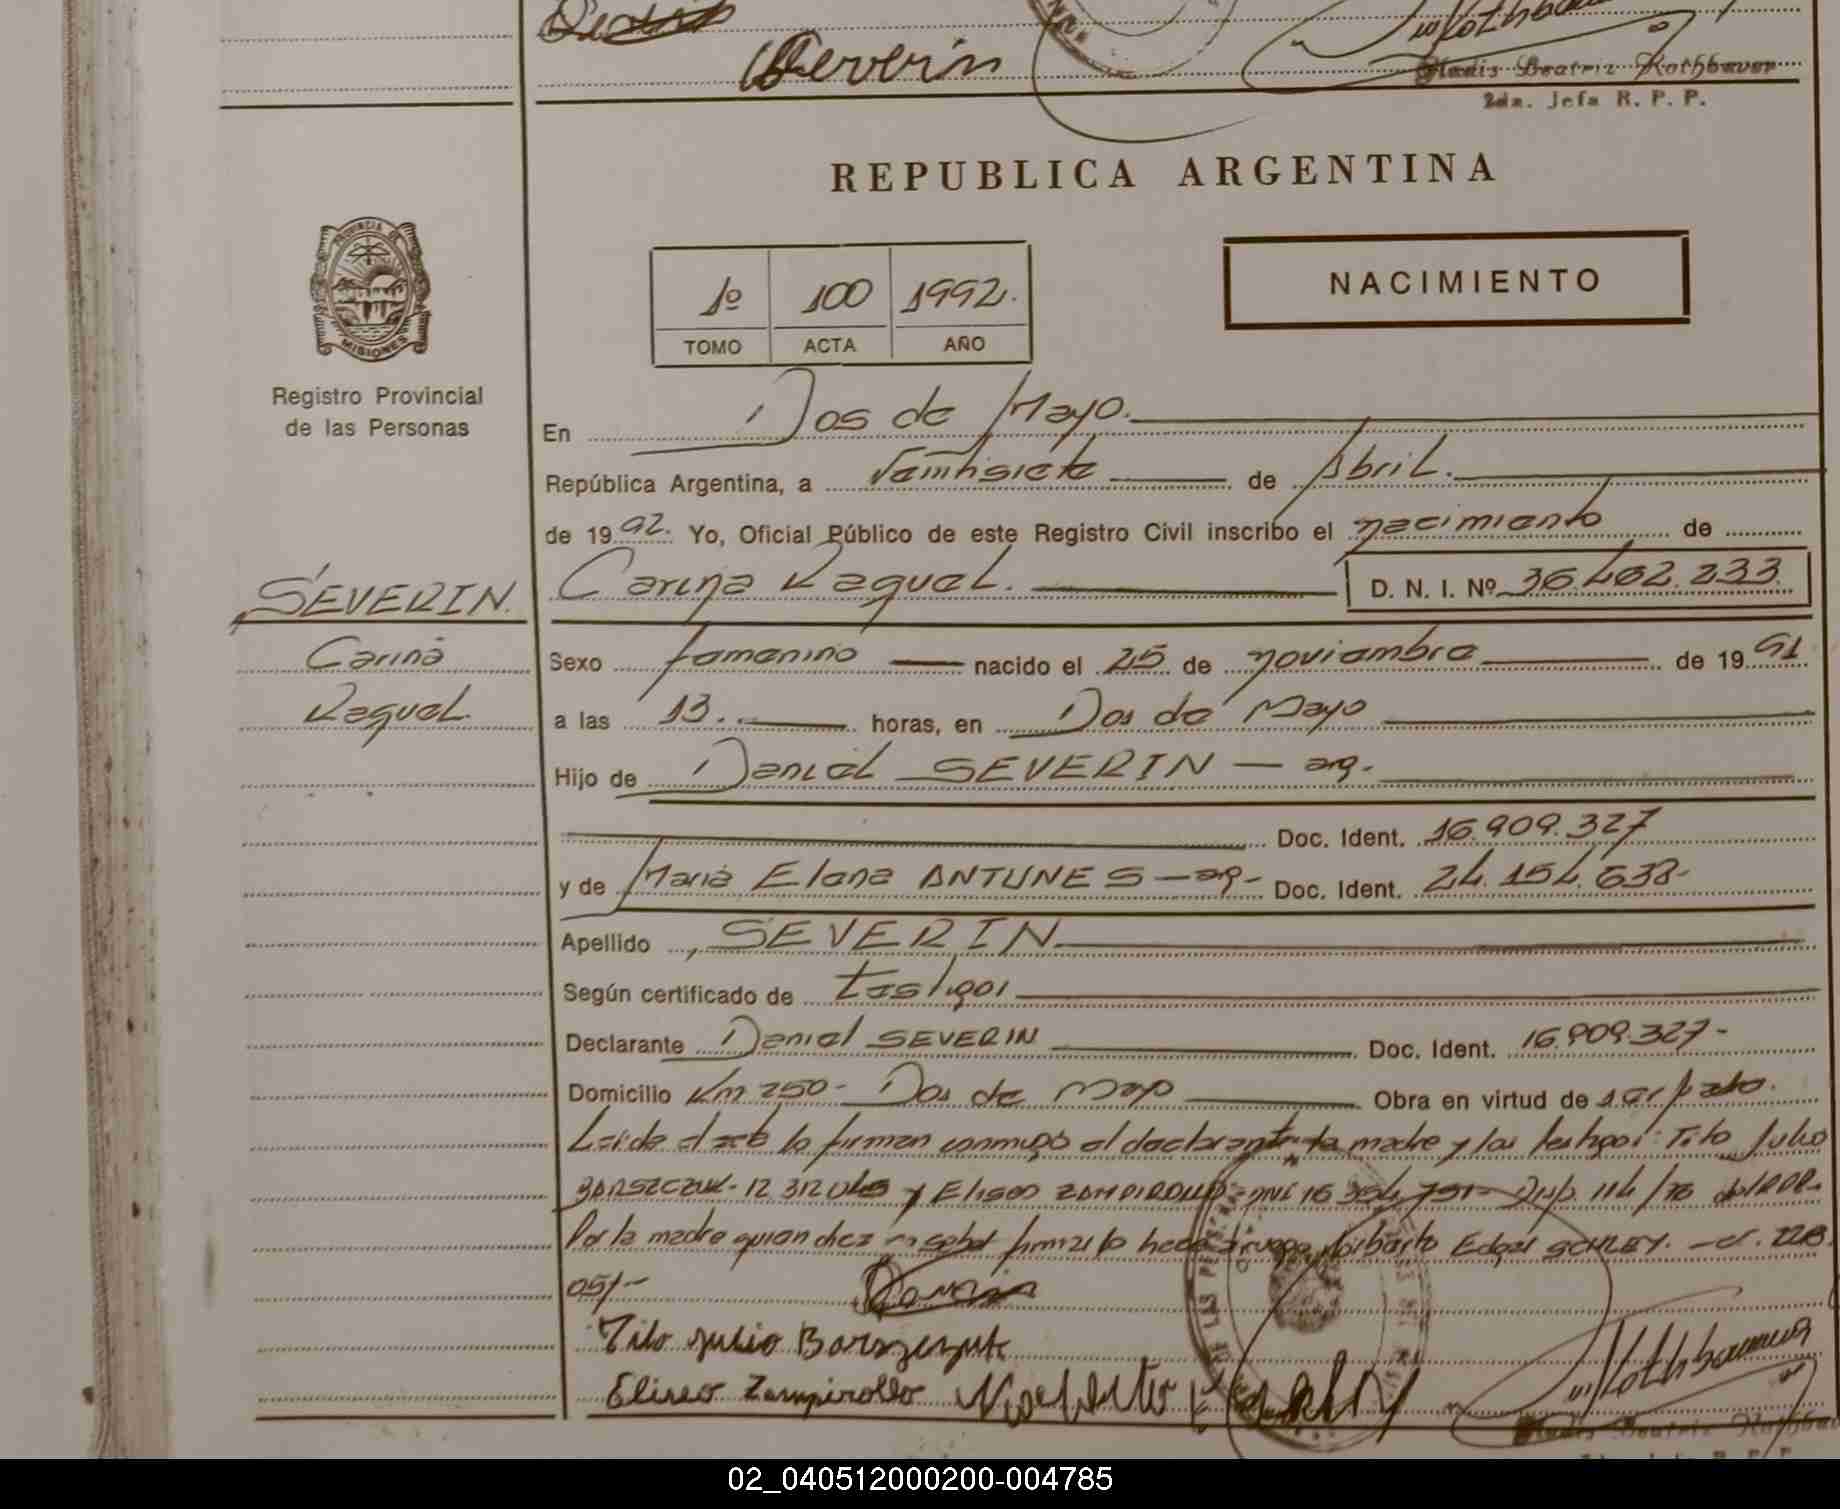 Severin
Gladis Beatriz Rothbauer
2da. Jefa R. P. P.
REPUBLICA ARGENTINA
PROVINCIA DE
MISIONES
1º 100 1992.
TOMO ACTA AÑO
NACIMIENTO
Registro Provincial
de las Personas
En Dos de Mayo.
República Argentina, a Veintisiete de Abril.
de 1992. Yo, Oficial Público de este Registro Civil inscribo el nacimiento de
SEVERIN. Carina Raquel. D. N. I. Nº 36.402.233
Carina Sexo femenino nacido el 25 de noviembre de 1991
Raquel. a las 13. horas, en Dos de Mayo
Hijo de Daniel SEVERIN — arg.
Doc. Ident. 16.909.327
y de Maria Elena ANTUNES — arg- Doc. Ident. 24.154.638-
Apellido SEVERIN
Según certificado de testigos
Declarante Daniel SEVERIN Doc. Ident. 16.909.327-
Domicilio Km 250- Dos de Mayo Obra en virtud de ser padre.
Leida el acta la firman conmigo el declarante la madre y los testigos: Tito Julio
BARSZCZUK- y Eliseo ZAMPIROLLO- DNI 16 354 751-
Por la madre quien dice no saber firmar lo hace a ruego Norberto Edgar
051-
Tito Julio Barszczuk
Eliseo Zampirollo Norberto
Rothbauer
Gladis Beatriz Rothbauer
02_040512000200-004785